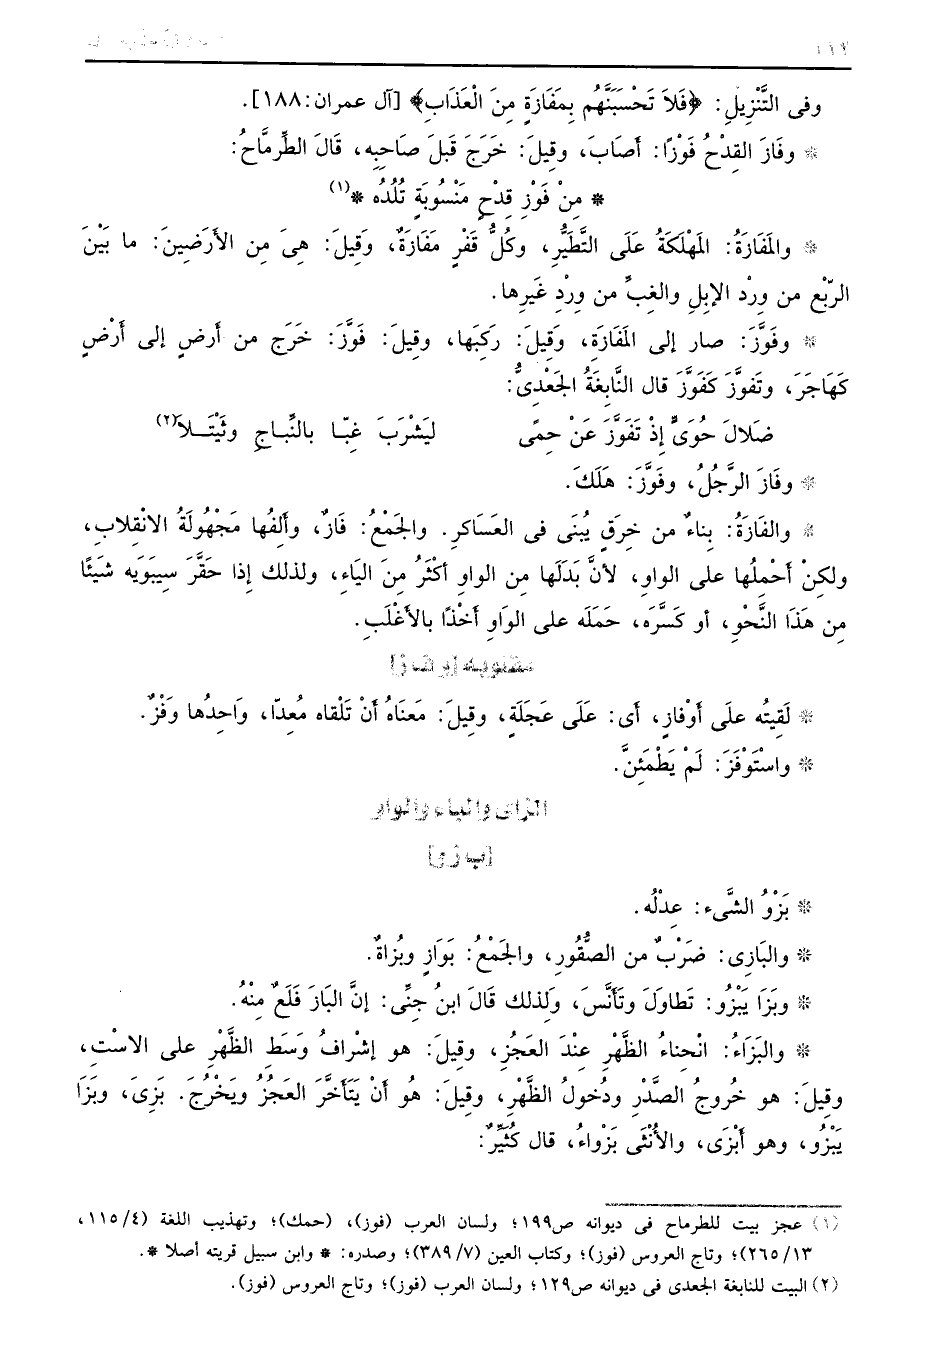 وفى التَّنْزِيلِ: ﴿فَلاَ تَحْسَبَنَّهُم بِمَفَازَةٍ مِنَ الْعَذَابِ﴾ [آل عمران: ١٨٨].
* وفَازَ القِدْحُ فَوْزًا: أصَابَ، وقِيلَ: خَرَجَ قَبلَ صَاحِبِه، قَالَ الطِّرِمَّاحُ:
* مِنْ فَوْزِ قِدْحٍ مَنْسُوبَةٍ تُلُدُه *(١)
* والمَفَازَةُ: المَهْلَكَةُ عَلَى التَّطَيُّرِ، وكُلُّ قَفْرٍ مَفَازَةٌ، وَقِيلَ: هِىَ مِن الأَرَضينَ: ما بَيْنَ
الرّبْع من ورْد الإبلِ والغِبِّ من ورْدِ غَيرِها.
* وفَوَّزَ: صار إلى المَفازَةِ، وَقِيلَ: رَكِبَها، وقِيلَ: فَوَّزَ: خَرَج من أرضٍ إلى أرْضٍ
كَهَاجَرَ، وتَفوَّزَ كَفَوَّزَ قال النَّابِغَةُ الجَعْدِىُّ:
ضَلالَ حُوَىٍّ إذْ تَفَوَّزَ عَنْ حِمًى لِيَشْرَبَ غِبّا بالنِّباجِ وثَيْتَلا(٢)
* وفَازَ الرَّجُلُ، وفَوَّزَ: هَلَكَ.
* والفَازَةُ: بِناءٌ من خِرَقٍ يُبْنَى فى العَسَاكرِ. والجَمْعُ: فَازٌ، وألِفُها مَجْهُولَةُ الانْقِلابِ،
ولكِنْ أحْمِلُها على الواوِ، لأنَّ بَدَلَها من الواوِ أكْثَرُ مِنَ اليَاءِ، ولذلك إذا حَقَّرَ سيبَوَيه شَيئًا
مِن هَذَا النَّحْوِ، أو كَسَّرَه، حَمَلَه على الوَاوِ أخْذًا بالأغْلَبِ.
مقلوبه [و ف ز]
* لَقِيتُه علَى أَوْفازٍ، أى: عَلَى عَجَلَةٍ، وقِيلَ: مَعنَاهُ أنْ تَلْقاه مُعِدّا، وَاحِدُها وَفْزٌ.
* واسْتَوْفَزَ: لَمْ يَطْمَئِنَّ.
الزاى والباء والواو
[ب ز و]
* بَزْوُ الشَّىءِ: عِدْلُه.
* والبَازِى: ضَرْبٌ من الصُّقُورِ، والجَمْعُ: بَوَازٍ وبُزاةٌ.
* وبَزَا يَبْزُو: تَطاوَلَ وتَأنَّسَ، وَلذلك قَالَ ابنُ جِنِّى: إنَّ البَازَ فَلَعٌ مِنْهُ.
* والبَزَاءُ: انْحِناءُ الظَّهْرِ عِنْدَ العَجزِ، وقِيلَ: هو إشْرافُ وَسَطِ الظَّهْرِ على الاسْتِ،
وقِيلَ: هو خُروجُ الصَّدْرِ ودُخولُ الظَّهْرِ، وقيلَ: هُو أنْ يَتَأَخَّرَ العَجُزُ ويَخْرُجَ. بَزِىَ، وبَزَا
يَبْزُو، وهو أبْزَى، والأُنْثَى بَزْواءُ، قال كُثَيِّرٌ:
(١) عجز بيت للطرماح فى ديوانه ص١٩٩؛ ولسان العرب (فوز)، (حمك)؛ وتهذيب اللغة (٤/ ١١٥،
١٣/ ٢٦٥)؛ وتاج العروس (فوز)؛ وكتاب العين (٧/ ٣٨٩)؛ وصدره: * وابن سبيل قريته أصلا *.
(٢) البيت للنابغة الجعدى فى ديوانه ص١٢٩؛ ولسان العرب (فوز)؛ وتاج العروس (فوز).